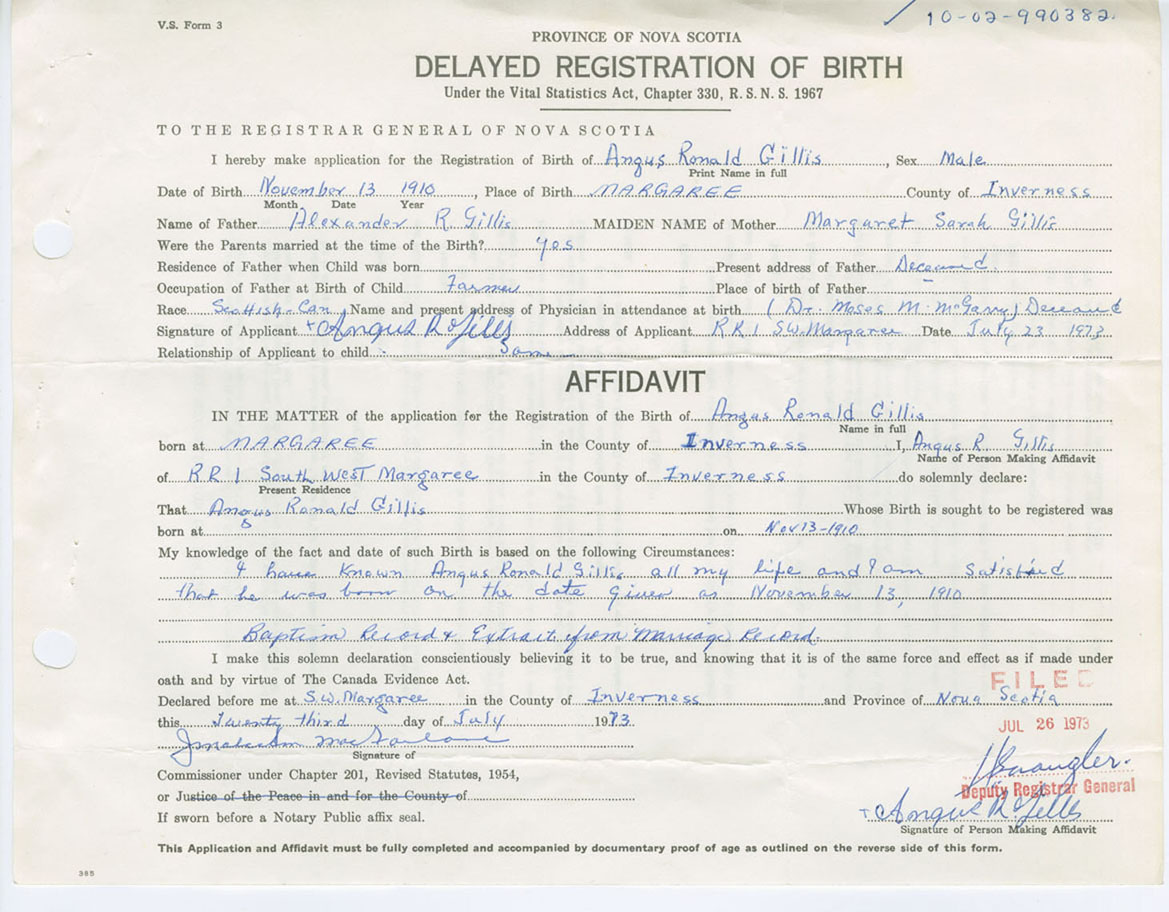 V.S. Form 3
10-02-990382
PROVINCE OF NOVA SCOTIA
DELAYED REGISTRATION OF BIRTH
Under the Vital Statistics Act, Chapter 330, R. S. N. S. 1967
TO THE REGISTRAR GENERAL OF NOVA SCOTIA
I hereby make application for the Registration of Birth of Angus Ronald Gillis, Sex Male
Print Name in full
Date of Birth November 13 1910, Place of Birth MARGAREE County of Inverness
Month Date Year
Name of Father Alexander R. Gillis MAIDEN NAME of Mother Margaret Sarah Gillis
Were the Parents married at the time of the Birth? yes
Residence of Father when Child was born Present address of Father Deceased.
Occupation of Father at Birth of Child Farmer Place of birth of Father
Race Scottish-Can, Name and present address of Physician in attendance at birth (Dr. Moses M. McGarry) Deceased
Signature of Applicant + Angus R Gillis Address of Applicant RR1 S.W. Margaree Date July 23 1973
Relationship of Applicant to child Same
AFFIDAVIT
IN THE MATTER of the application for the Registration of the Birth of Angus Ronald Gillis
Name in full
born at MARGAREE in the County of Inverness I, Angus R. Gillis
Name of Person Making Affidavit
of RR 1 South West Margaree in the County of Inverness do solemnly declare:
Present Residence
That Angus Ronald Gillis Whose Birth is sought to be registered was
born at on Nov 13-1910
My knowledge of the fact and date of such Birth is based on the following Circumstances:
I have known Angus Ronald Gillis all my life and I am Satisfied
that he was born on the date given as November 13, 1910
Baptism Record & Extract from Marriage Record.
I make this solemn declaration conscientiously believing it to be true, and knowing that it is of the same force and effect as if made under
oath and by virtue of The Canada Evidence Act.
FILED
Declared before me at S.W. Margaree in the County of Inverness and Province of Nova Scotia
this Twenty third day of July 1973
JUL 26 1973
J Malcolm MacFarlane
Signature of
Commissioner under Chapter 201, Revised Statutes, 1954,
Deputy Registrar General
or Justice of the Peace in and for the County of
+ Angus R Gillis
If sworn before a Notary Public affix seal.
Signature of Person Making Affidavit
This Application and Affidavit must be fully completed and accompanied by documentary proof of age as outlined on the reverse side of this form.
385